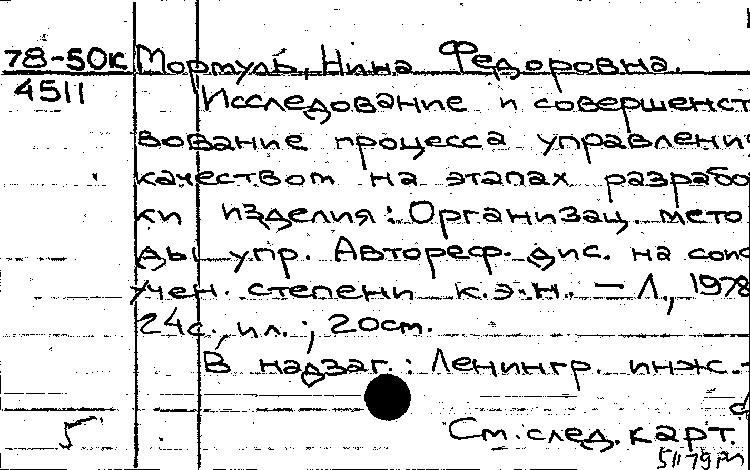 78-50к Мормуль, Нина Федоровна.
4511 Исследование и совершенст
вование процесса управлени
качеством на этапах разрабо
ки изделия: Организац. мето
ды упр. Автореф. дис. на соис
учен. степени к.э.н. — Л., 1978
24с., ил.; 20см.
В надзаг.: Ленингр. инж.-
См. след. карт.
5